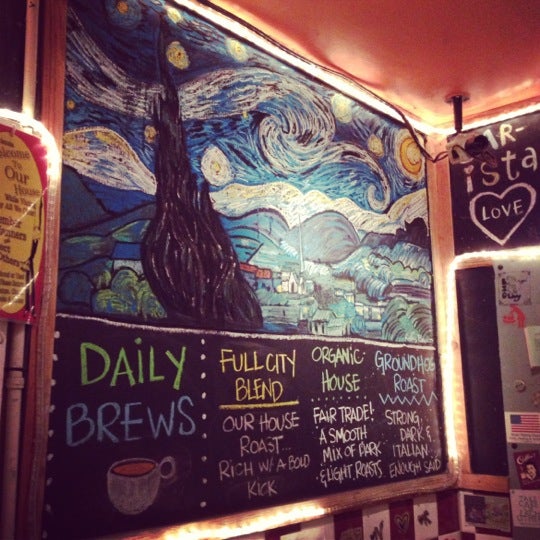 Welcome
to
Our
House
DAILY
BREWS
FULL CITY
BLEND
OUR HOUSE
ROAST...
RICH W/ A BOLD
KICK
ORGANIC
HOUSE
FAIR TRADE!
A SMOOTH
MIX OF DARK
& LIGHT ROASTS
GROUNDHOG
ROAST
STRONG,
DARK &
ITALIAN.
ENOUGH SAID
ista
LOVE